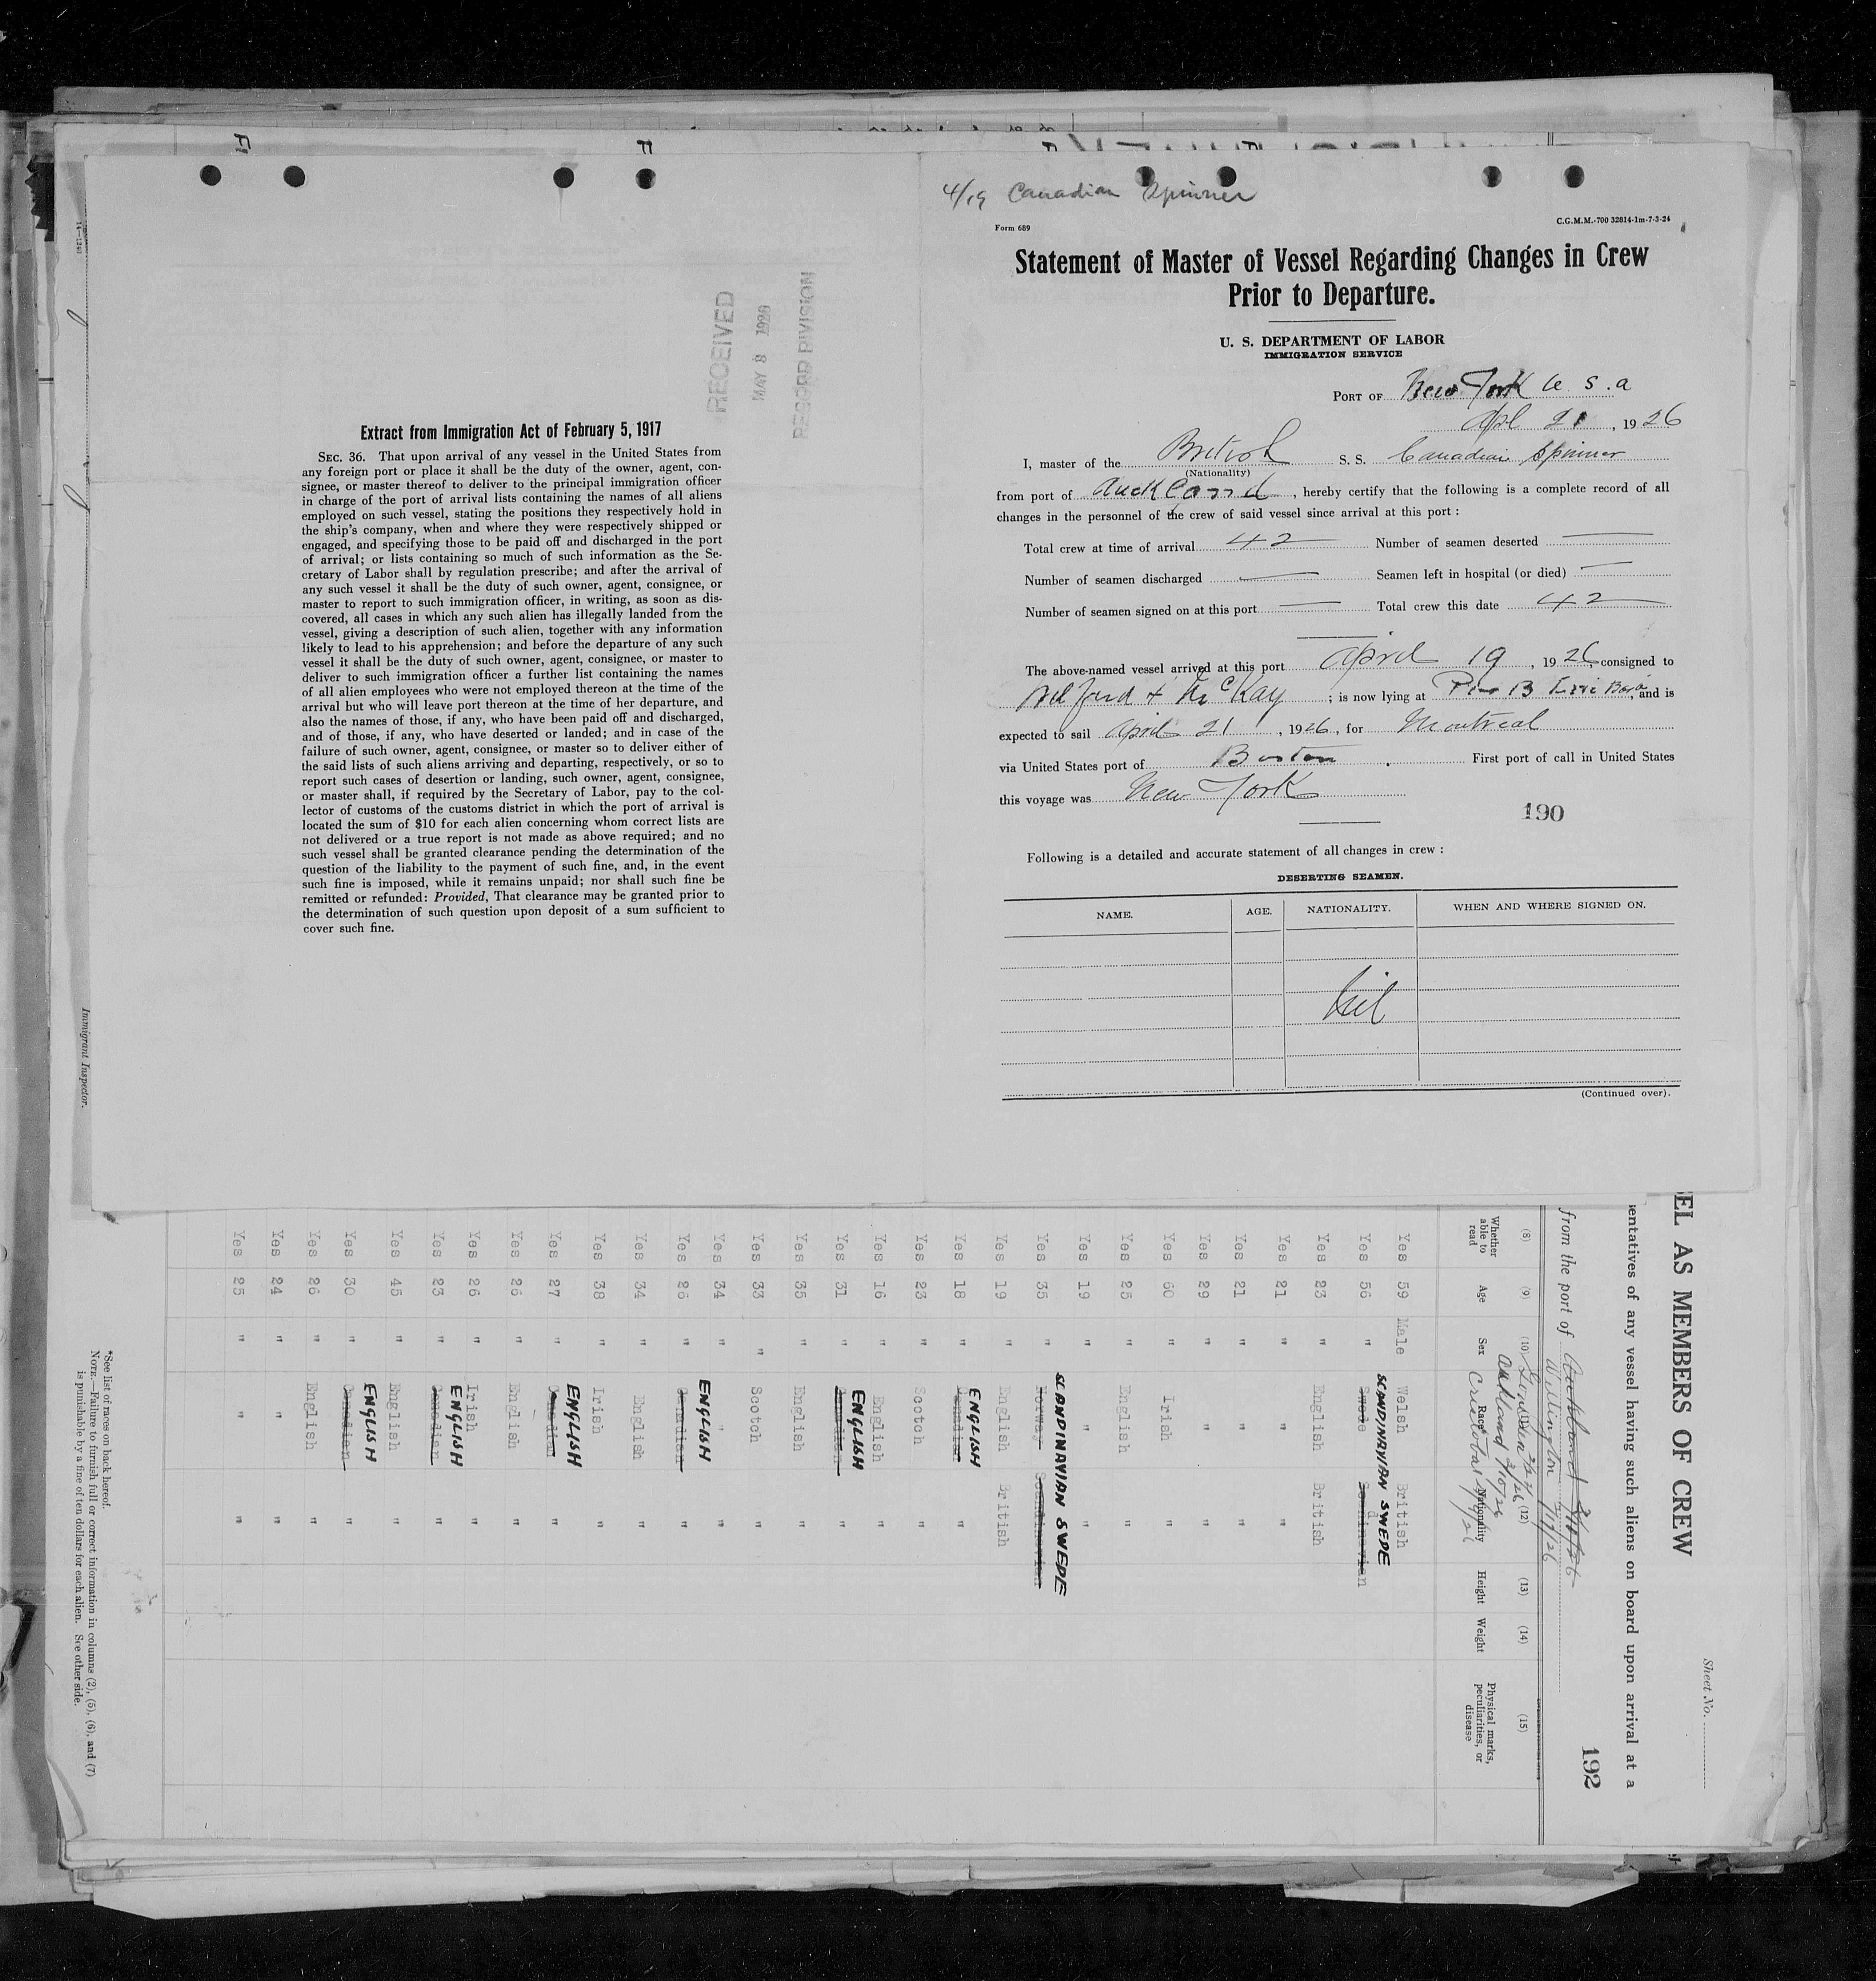 RECEIVED
MAY 8 1926
RECORD DIVISION
Extract from Immigration Act of February 5, 1917
SEC. 36. That upon arrival of any vessel in the United States from
any foreign port or place it shall be the duty of the owner, agent, con-
signee, or master thereof to deliver to the principal immigration officer
in charge of the port of arrival lists containing the names of all aliens
employed on such vessel, stating the positions they respectively hold in
the ship's company, when and where they were respectively shipped or
engaged, and specifying those to be paid off and discharged in the port
of arrival; or lists containing so much of such information as the Se-
cretary of Labor shall by regulation prescribe; and after the arrival of
any such vessel it shall be the duty of such owner, agent, consignee, or
master to report to such immigration officer, in writing, as soon as dis-
covered, all cases in which any such alien has illegally landed from the
vessel, giving a description of such alien, together with any information
likely to lead to his apprehension; and before the departure of any such
vessel it shall be the duty of such owner, agent, consignee, or master to
deliver to such immigration officer a further list containing the names
of all alien employees who were not employed thereon at the time of the
arrival but who will leave port thereon at the time of her departure, and
also the names of those, if any, who have been paid off and discharged,
and of those, if any, who have deserted or landed; and in case of the
failure of such owner, agent, consignee, or master so to deliver either of
the said lists of such aliens arriving and departing, respectively, or so to
report such cases of desertion or landing, such owner, agent, consignee,
or master shall, if required by the Secretary of Labor, pay to the col-
lector of customs of the customs district in which the port of arrival is
located the sum of $10 for each alien concerning whom correct lists are
not delivered or a true report is not made as above required; and no
such vessel shall be granted clearance pending the determination of the
question of the liability to the payment of such fine, and, in the event
such fine is imposed, while it remains unpaid; nor shall such fine be
remitted or refunded: Provided, That clearance may be granted prior to
the determination of such question upon deposit of a sum sufficient to
cover such fine.
14-1240
Immigrant Inspector.
4/19 Canadian Spinner
Form 689
C.G.M.M.-700 32814-1m-7-3-24
Statement of Master of Vessel Regarding Changes in Crew
Prior to Departure.
U. S. DEPARTMENT OF LABOR
IMMIGRATION SERVICE
PORT OF New York U. S. A
Apl 21, 1926
I, master of the British S. S. Canadian Spinner
(Nationality)
from port of Auckland, hereby certify that the following is a complete record of all
changes in the personnel of the crew of said vessel since arrival at this port:
Total crew at time of arrival 42 Number of seamen deserted —
Number of seamen discharged — Seamen left in hospital (or died) —
Number of seamen signed on at this port — Total crew this date 42
The above-named vessel arrived at this port April 19, 1926, consigned to
& McKay; is now lying at Pier B Erie Basin, and is
expected to sail April 21, 1926, for Montreal
via United States port of Boston. First port of call in United States
this voyage was New York
190
Following is a detailed and accurate statement of all changes in crew:
DESERTING SEAMEN.
NAME. AGE. NATIONALITY. WHEN AND WHERE SIGNED ON.
Nil
(Continued over).
Sheet No.
EL AS MEMBERS OF CREW
sentatives of any vessel having such aliens on board upon arrival at a
192
from the port of Auckland
Wellington
Auckland
(8) (9) (10) (12) (13) (14) (15)
Whether able to read Age Sex Race Nationality Height Weight Physical marks, peculiarities, or disease
Yes 59 Male Welsh British
SCANDINAVIAN SWEDE
Yes 56 " Swede
Yes 23 " English British
Yes 21 " " "
Yes 21 " " "
Yes 29 " " "
Yes 60 " Irish "
Yes 25 " English "
Yes 19 " " "
SCANDINAVIAN SWEDE
Yes 35 " Norway
Yes 19 " English British
ENGLISH
Yes 18 " Canadian "
Yes 23 " Scotch "
Yes 16 " English "
ENGLISH
Yes 31 " Canadian "
Yes 35 " English "
Yes 33 " Scotch "
Yes 34 " " "
ENGLISH
Yes 26 " Canadian "
Yes 34 " English "
Yes 38 " Irish "
ENGLISH
Yes 27 " Canadian "
Yes 26 " English "
Yes 26 " Irish "
ENGLISH
Yes 23 " Canadian "
Yes 45 " English "
ENGLISH
Yes 30 " Canadian "
Yes 26 " English "
Yes 24 " " "
Yes 25 " " "
*See list of races on back hereof.
NOTE.—Failure to furnish full or correct information in columns (2), (5), (6), and (7)
is punishable by a fine of ten dollars for each alien. See other side.